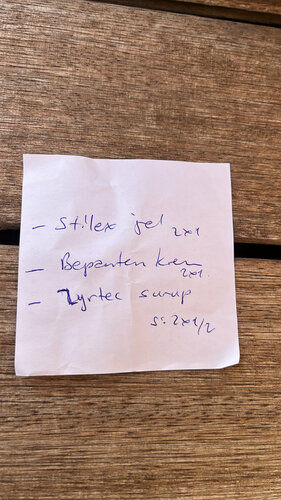 - Stilex jel 2x1
- Bepanten krem 2x1
- Zyrtec şurup
S: 2x1/2